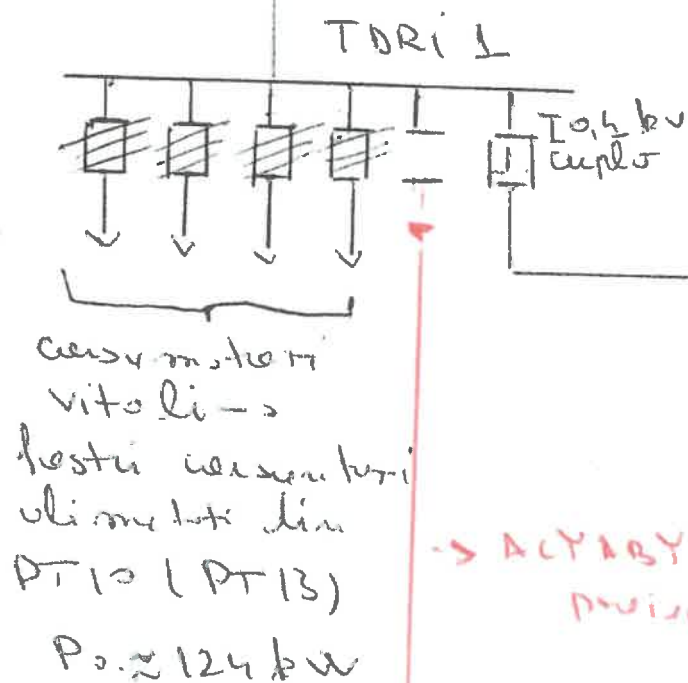 TDRi 1
I 0,4 kV
cuplă
consumatori
vitali →
foștii consumatori
alimentați din
PT10 (PT13)
Pa. ≈ 124 kW
→ ACYABY